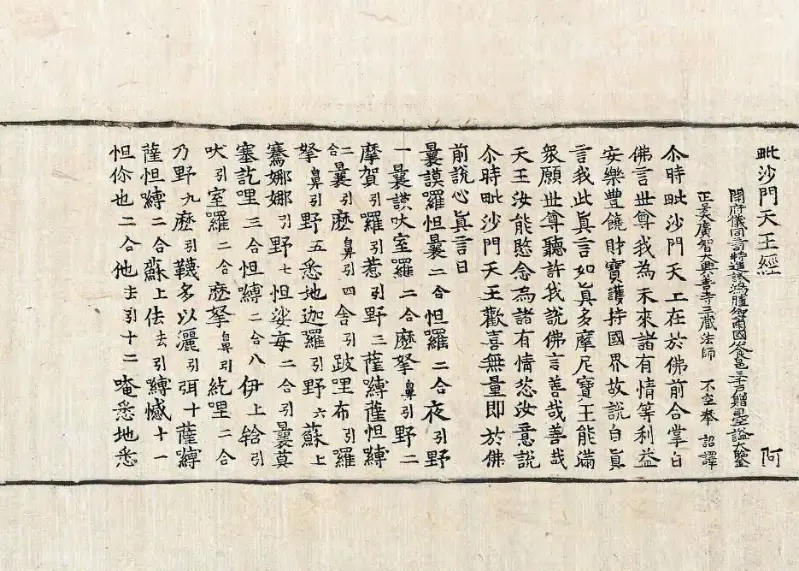 毗沙門天王經 阿
開府儀同三司特進試鴻臚卿肅國公食邑三千戶贈司空謚大鑒
正号大廣智大興善寺三藏法師 不空奉 詔譯
尒時毗沙門天王在於佛前合掌白
佛言世尊我為未來諸有情等利益
安樂豐饒財寶護持國界故說自真
言我此真言如真多摩尼寶王能滿
衆願世尊聽許我說佛言善哉善哉
天王汝能愍念為諸有情恣汝意說
尒時毗沙門天王歡喜無量即於佛
前說心真言曰
曩謨羅怛曩二合怛羅二合夜引野
一曩謨吠室羅二合麽拏鼻引野二
摩賀引羅引惹引野三薩縛薩怛縛
二合曩引麽鼻引四舍引跛哩布引羅
拏鼻引野五悉地迦羅引野六蘇上
騫娜娜引野七怛娑每二合引曩莫
塞訖哩三合怛縛二合八伊上𤚥引
吠引室羅二合麽拏鼻引紇哩二合
乃野九麽引韈多以灑引弭十薩縛
薩怛縛二合蘇上佉去引縛憾十一
怛你也二合他去引十二唵悉地悉